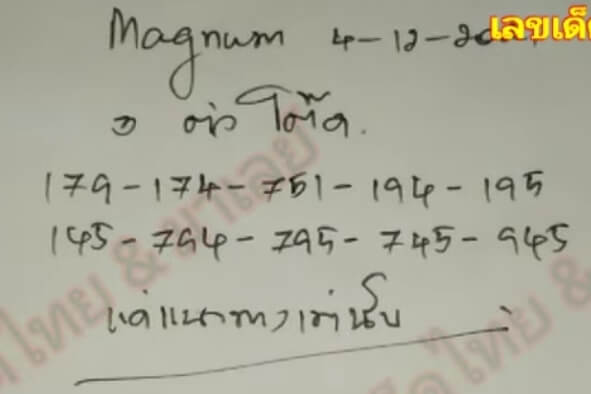 Magnum 4-12-20
เลขเด็
3 ตัว โต๊ด.
179-174-751-194-195
145-794-795-745-945
แค่แนวทางเท่านั้น